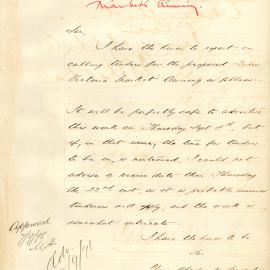 Markets Awning.
Sir
I have the honor to report on
calling tenders for the proposed Queen
Victoria Market Awning as follows:
It will be perfectly safe to advertise
this work on Thursday Sept 8th, but
if, in that issue, the time for tenders
to be in, is mentioned, I could not
advise a nearer date than Thursday
the 22nd inst, as it is probable numerous
tenderers will apply, and the work is
somewhat intricate.
I have the honor to be
Sir
Approved
Adv.